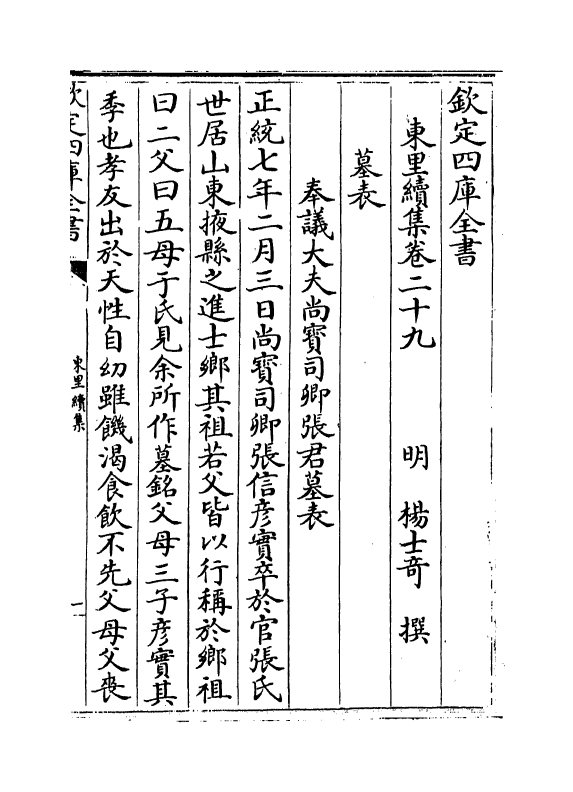 欽定四庫全書
東里續集卷二十九　明　楊士奇　撰
墓表
奉議大夫尚寶司卿張君墓表
正統七年二月三日尚寶司卿張信彦實卒於官張氏
世居山東掖縣之進士鄉其祖若父皆以行稱於鄉祖
曰二父曰五母于氏見余所作墓銘父母三子彦實其
季也孝友出於天性自幼雖饑渴食飲不先父母父喪
欽定四庫全書
東里續集
一